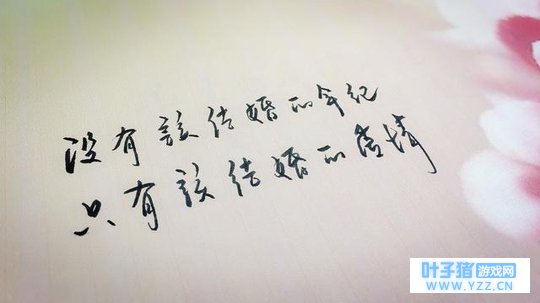 没有該结婚的年纪
只有該结婚的爱情
叶子猪游戏网
WWW.YZZ.CN